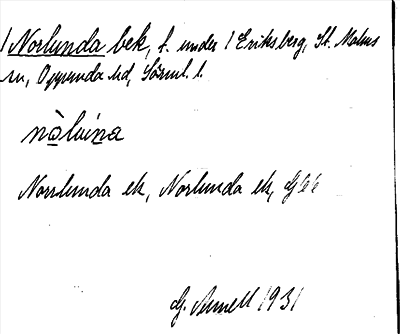 / Norlunda bek, f. under / Eriksberg, St. Malms
sn, Oppunda hd, Sörml. l.
Norrlunda ek, Norlunda ek,
G. Arnell 1931